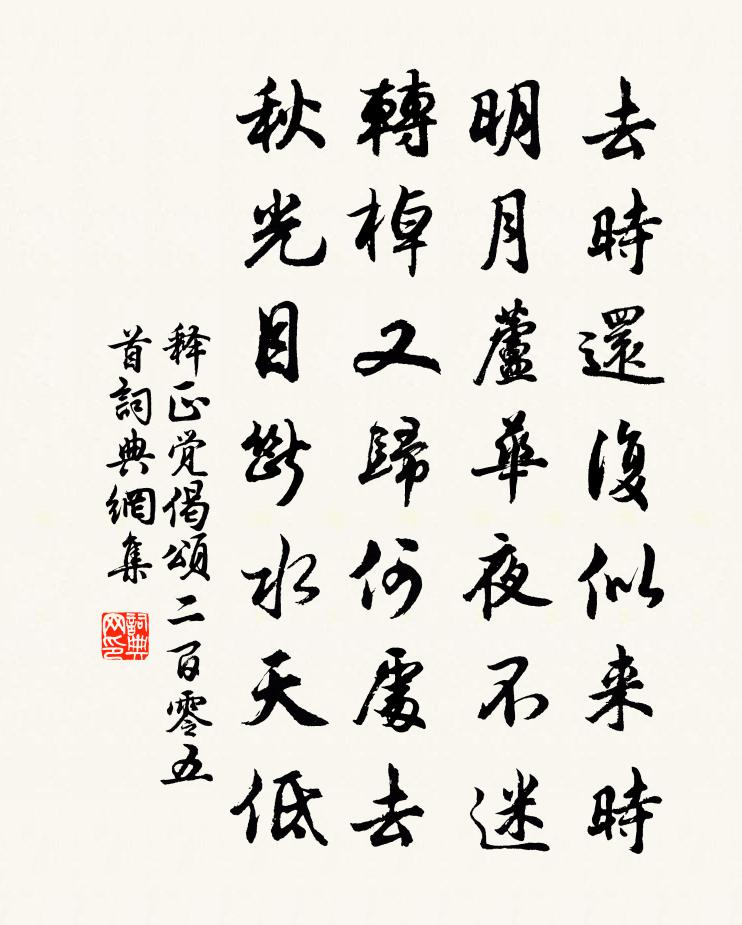 去時還復似来時
明月蘆華夜不迷
轉棹又歸何處去
秋光目斷水天低
释正觉偈頌二百零五
首詞典網集
詞典
网印